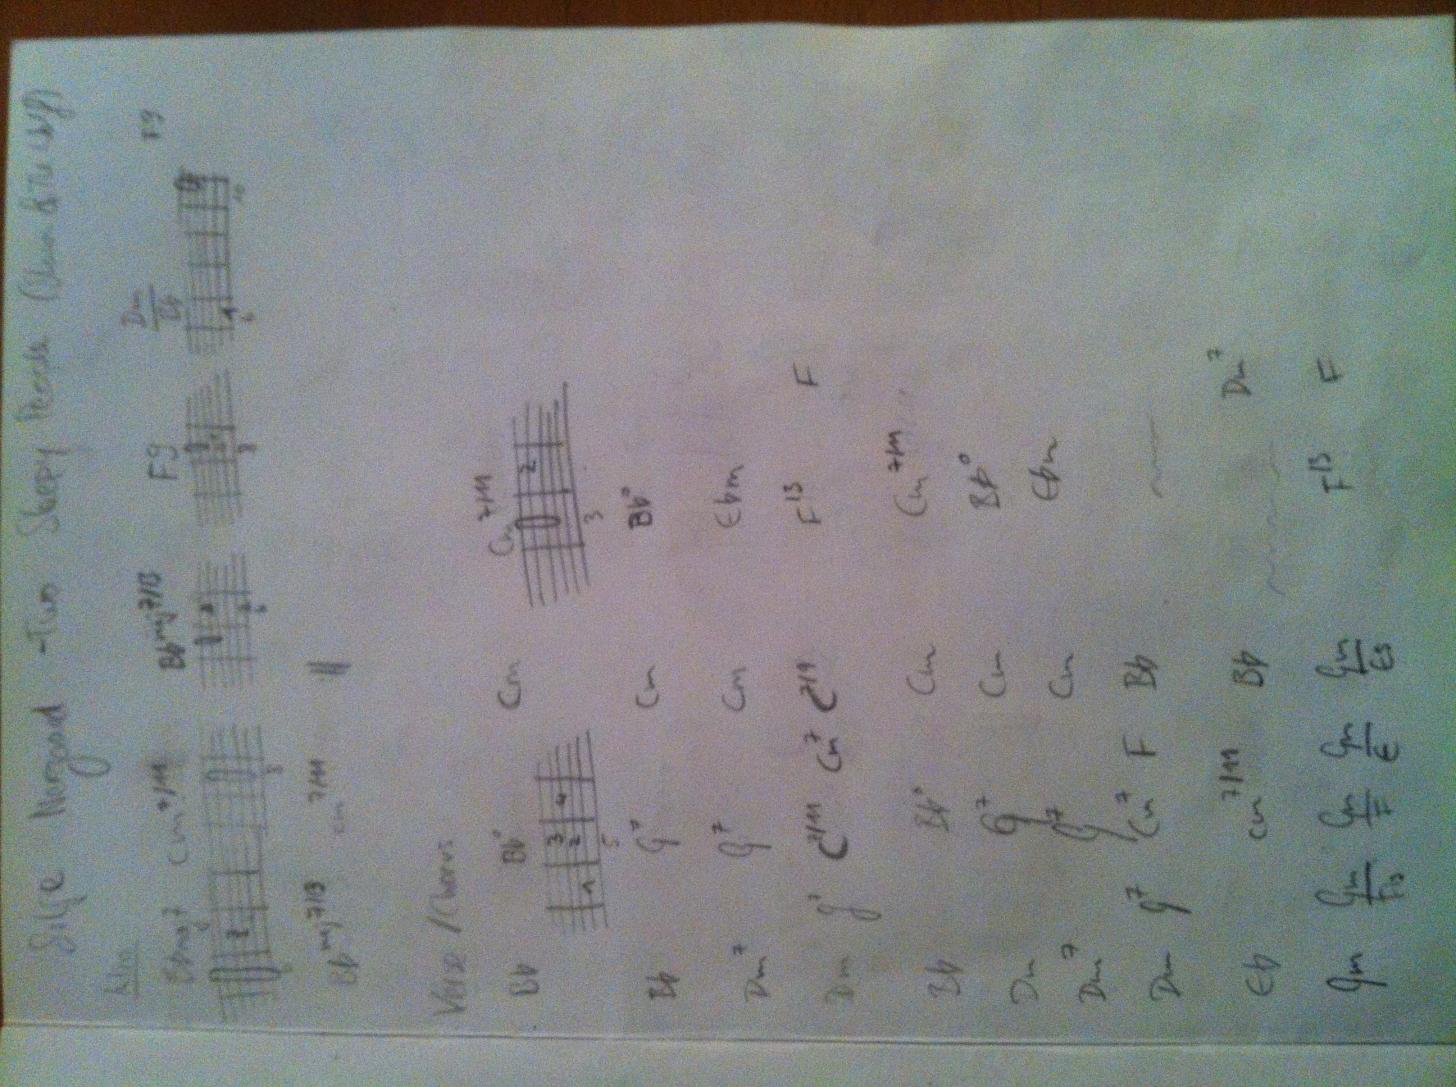 Silje Nergaard - Two Sleepy People
Intro
Bbmaj7 Cm7/11 Bbmaj7/13 F9 Dm/Bb F9
2 3 6 3 1 6 10
Bbmaj7/13 Cm7/11
Verse / Chorus
Bb Bb° Cm Cm7/11
1 2 3 4 5 2 3
Bb G7 Cm Bb°
Dm7 G7 Cm Ebm
Dm G7 C7/11 Cm7 C7/9 F13 F
Bb Bb° Cm Cm7/11
Dm G7 Cm Bb°
Dm7 G7 Cm Ebm
Dm G7 Cm7 F Bb
Eb Cm7/11 Bb Dm7
Gm Gm/F# Gm/F Gm/E Gm/Es F13 F